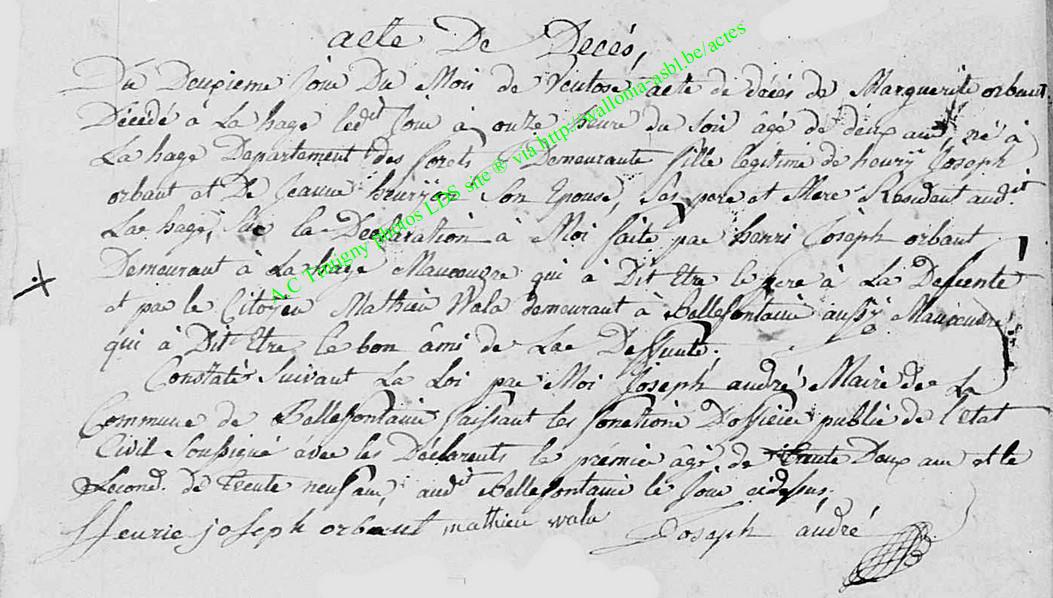 acte De Decés,
Du Deuxieme Jour Du Mois de Ventose acte de décés de Marguerite orbant
Décédé à La hage ledit Jour à onze heure du soir âgé de deux ans né à
La hage Departement des forets Demeurante fille legitime de henry Joseph
orbant et De Jeanne henryon Son Epouse, Ses pere et Mere Residant audit
La hage, Sur la Declaration à Moi faite par henri Joseph orbant
Demeurant à La hage Manoeuvre qui à Dit Etre le pere à La Defunte
et par le Citoyen Mathieu Wala demeurant à Bellefontaine aussy Manoeuvre
qui à Dit Etre le bon âmi de Lae Deffunte.
Constaté Suivant La Loi par Moi Joseph andré Maire de La
Commune de Bellefontaine faisant les fonctions D'officier public de l'Etat
Civil Soussigné avec les Déclarents le premier âgé de trente Deux ans et le
Second de trente neuf ans audit Bellefontaine le Jour cidessus,
Heurie joseph orbant mathieu wala Joseph andré
A.C Tintigny photos LDS site ® via http://wallonia-asbl.be/actes